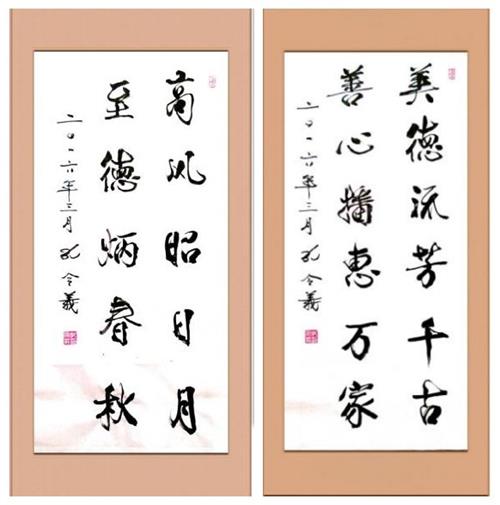 高风昭日月
至德炳春秋
二〇一六年三月 孔令義
美德流芳千古
善心播惠万家
二〇一六年三月 孔令義